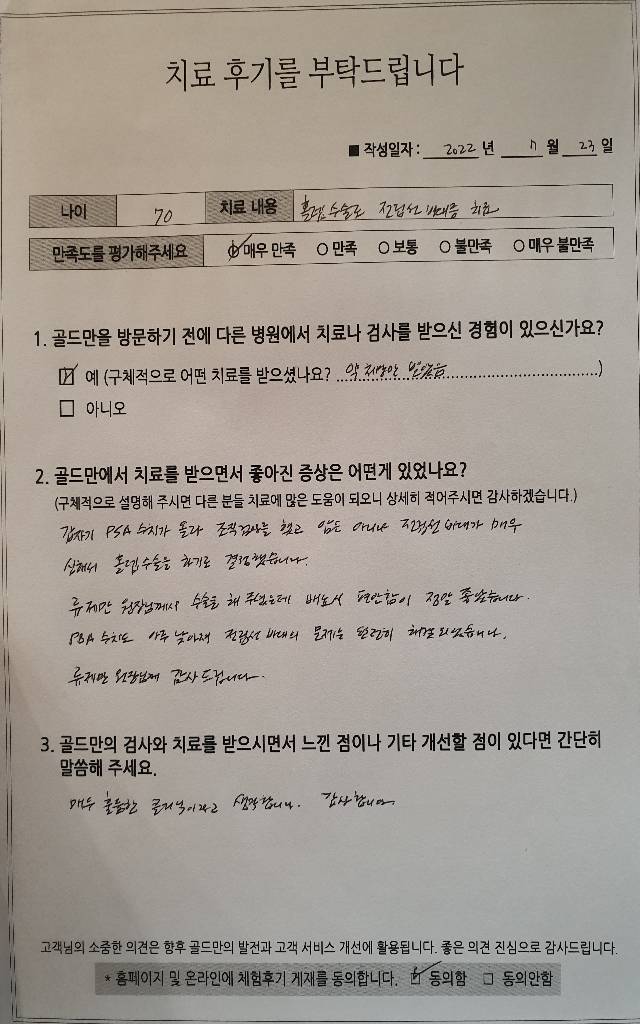 치료 후기를 부탁드립니다
■ 작성일자 : 2022 년 7 월 23 일
나이 70 치료 내용 홀렙수술로 전립선 비대증 치료
만족도를 평가해주세요 매우 만족 ○ 만족 ○ 보통 ○ 불만족 ○ 매우 불만족
1. 골드만을 방문하기 전에 다른 병원에서 치료나 검사를 받으신 경험이 있으신가요?
☑ 예 (구체적으로 어떤 치료를 받으셨나요? 약 처방만 받았음)
□ 아니오
2. 골드만에서 치료를 받으면서 좋아진 증상은 어떤게 있었나요?
(구체적으로 설명해 주시면 다른 분들 치료에 많은 도움이 되오니 상세히 적어주시면 감사하겠습니다.)
갑자기 PSA 수치가 올라 조직검사를 했고 암은 아니나 전립선 비대가 매우
심해서 홀렙수술을 하기로 결정했습니다.
류제만 원장님께서 수술을 해 주셨는데 배뇨시 편안함이 정말 좋았습니다.
PSA 수치도 아주 낮아져 전립선 비대의 문제는 완전히 해결 되었습니다.
류제만 원장님께 감사드립니다.
3. 골드만의 검사와 치료를 받으시면서 느낀 점이나 기타 개선할 점이 있다면 간단히
말씀해 주세요.
매우 훌륭한 클리닉이라고 생각합니다. 감사합니다
고객님의 소중한 의견은 향후 골드만의 발전과 고객 서비스 개선에 활용됩니다. 좋은 의견 진심으로 감사드립니다.
* 홈페이지 및 온라인에 체험후기 게재를 동의합니다. ☑ 동의함 □ 동의안함